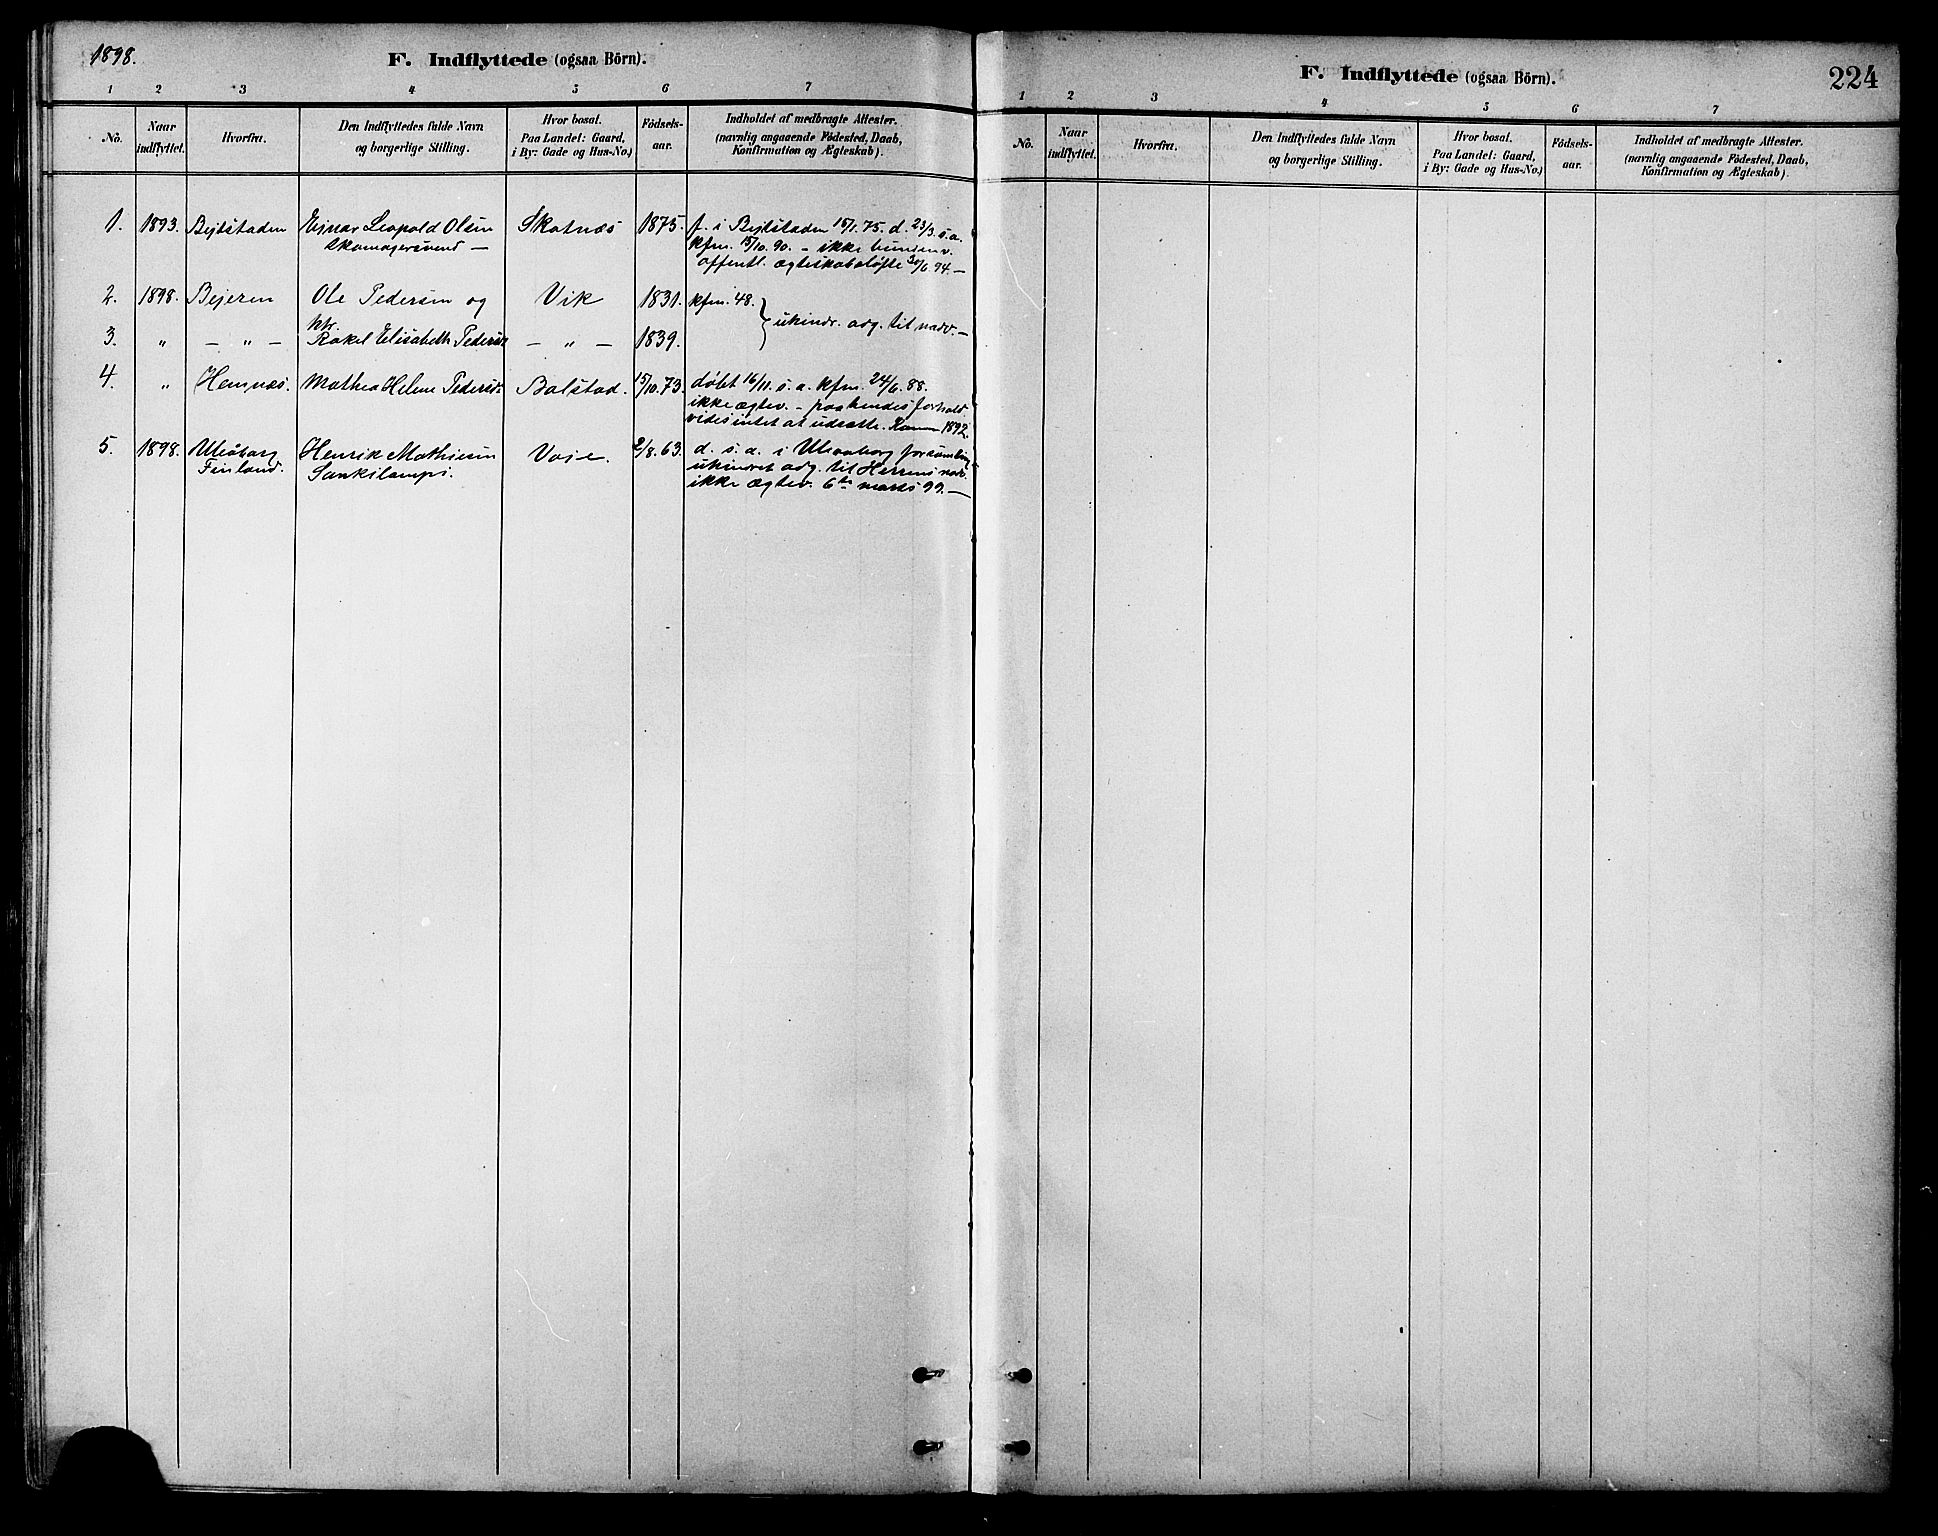 1898.
F. Indflyttede (ogsaa Börn).
1 2 3 4 5 6 7
No. Naar indflyttet. Hvorfra. Den Indflyttedes fulde Navn og borgerlige Stilling. Hvor bosat. Paa Landet: Gaard, i By: Gade og Hus-No.) Födsels-aar. Indholdet af medbragte Attester. (navnlig angaaende Födested, Daab, Konfirmation og Ægteskab).
1. 1893. Bejtstaden Ejnar Leopold Olsen Skotnæs 1875. f. i Bejtstaden 15/1. 75. d. 23/3. s. a.
skomagersvend — kfm. 15/10. 90. – ikke bunden v.
offentl. ægteskabsløfte 30/6. 94. —
2. 1898. Bejeren Ole Pedersen og Vik 1831. kfm. 48.
ukindr. adg. til nadv. —
3. " — " — Rakel Elisabeth Pedersen — " — 1839.
4. " Hemnæs. Mathea Helene Pedersd. Balstad. 15/10. 73. døbt 16/11. s. a. kfm. 24/6. 88.
ikke ægtev. – paa hendes forhold
vides intet at udsætte. Kom 1892.
5. 1898. Uleåborg Henrik Mathiesen Voie. 2/8. 63. d. s. a. i Uleaaborg forsamling
Finland. Sankilampi. ukindret adg. til Herrens nadv.
ikke ægtev. 6te marts 99. —
F. Indflyttede (ogsaa Börn).
224
1 2 3 4 5 6 7
No. Naar indflyttet. Hvorfra. Den Indflyttedes fulde Navn og borgerlige Stilling. Hvor bosat. Paa Landet: Gaard, i By: Gade og Hus-No.) Födsels-aar. Indholdet af medbragte Attester. (navnlig angaaende Födested, Daab, Konfirmation og Ægteskab).